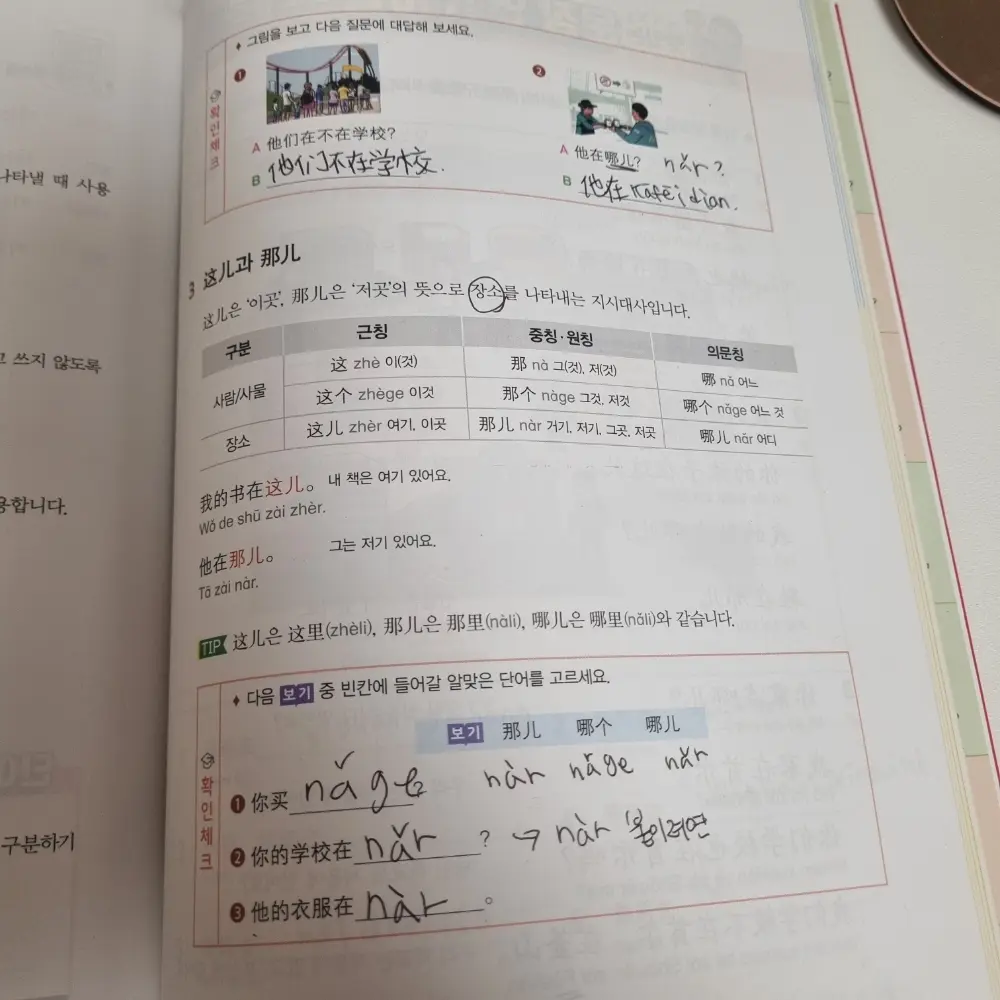 나타낼 때 사용
고 쓰지 않도록
용합니다.
구분하기
♦ 그림을 보고 다음 질문에 대답해 보세요.
확인체크
❶
A 他们在不在学校?
B 他们不在学校.
❷
A 他在哪儿? nǎr?
B 他在 Kafēi dian.
3 这儿과 那儿
这儿은 '이곳', 那儿은 '저곳'의 뜻으로 장소를 나타내는 지시대사입니다.
구분 근칭 중칭·원칭 의문칭
사람/사물 这 zhè 이(것) 那 nà 그(것), 저(것) 哪 nǎ 어느
这个 zhège 이것 那个 nàge 그것, 저것 哪个 nǎge 어느 것
장소 这儿 zhèr 여기, 이곳 那儿 nàr 거기, 저기, 그곳, 저곳 哪儿 nǎr 어디
我的书在这儿。 내 책은 여기 있어요.
Wǒ de shū zài zhèr.
他在那儿。 그는 저기 있어요.
Tā zài nàr.
TIP 这儿은 这里(zhèli), 那儿은 那里(nàli), 哪儿은 哪里(nǎli)와 같습니다.
♦ 다음 보기 중 빈칸에 들어갈 알맞은 단어를 고르세요.
확인체크
보기 那儿 哪个 哪儿
nàr nǎge nǎr
❶ 你买 nǎge
❷ 你的学校在 nǎr ? → nàr
❸ 他的衣服在 nàr 。